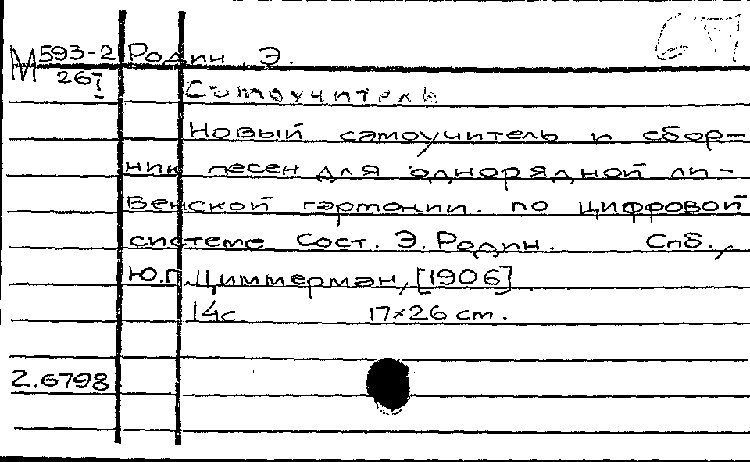 М 593-2 Родин, Э.
267
Самоучитель
Новый самоучитель и сбор=
ник песен для однорядной ли-
венской гармонии. по цифровой
системе Сост. Э. Родин. Спб.,
Ю.Г. Циммерман, [1906]
14с 17×26 cm.
2.6798